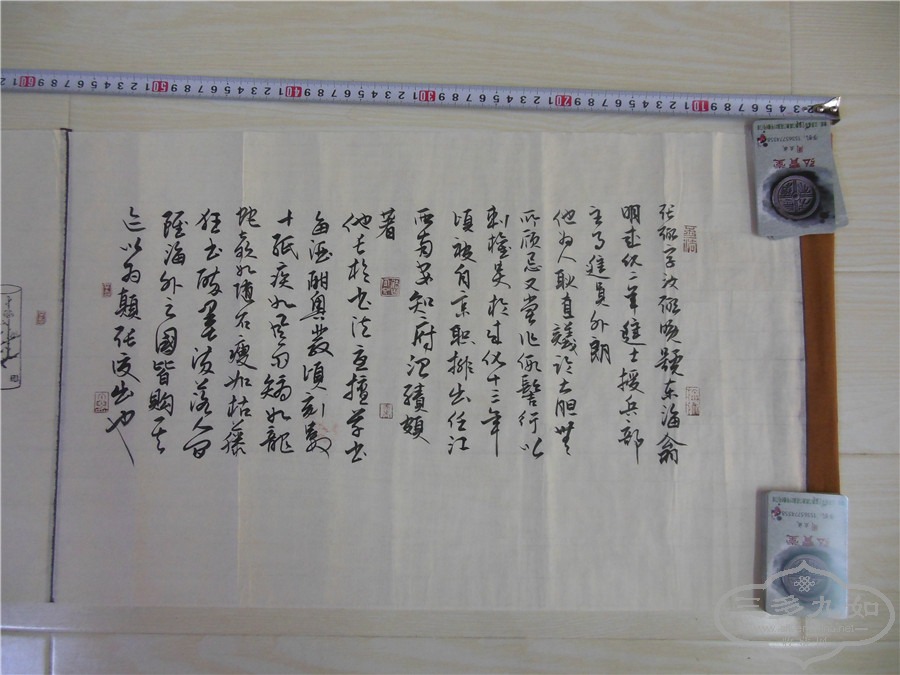 张弼字汝弼晚号东海翁
明成化二年进士授兵部
主事进员外郎
他为人耿直议论大胆无
所顾忌又尝作假髻行以
刺权贵于成化十三年
顷被自京职排出任江
西南安知府治绩颇
著
他长于书法尤擅草书
每酒酣兴发顷刻数
十纸疾如风雨矫如龙
蛇欹如堕石瘦如枯藤
狂书醉墨流落人间
虽海外之国皆购其
迹以为颠张复出也
弘宝堂
弘宝堂
三多九如